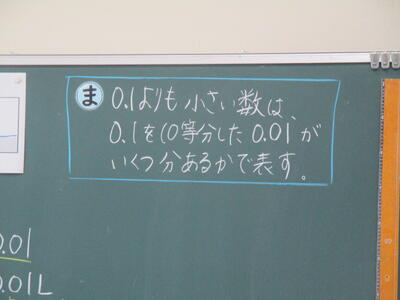 ま 0.1よりも小さい数は、
0.1を10等分した0.01が
いくつ分あるかで表す。
0.01
0.01L